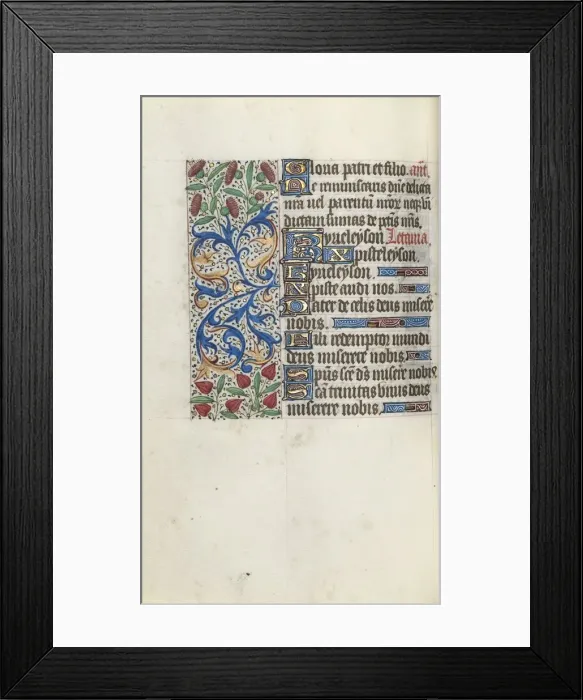 Gloria patri et filio. añt.
Ne reminiscaris dñe delicta
nra uel parentũ nror̃ neqȝ vĩ
dictam sumas de pctis nris.
Kyrieleyson. Letania.
Xpisteleyson.
Kyrieleyson.
Xpiste audi nos.
Pater de celis deus miserẽ
nobis.
Fili redemptor mundi
deus miserere nobis.
Spũs scẽ dš miserẽ nobis.
Scã trinitas vnus deus
miserere nobis.